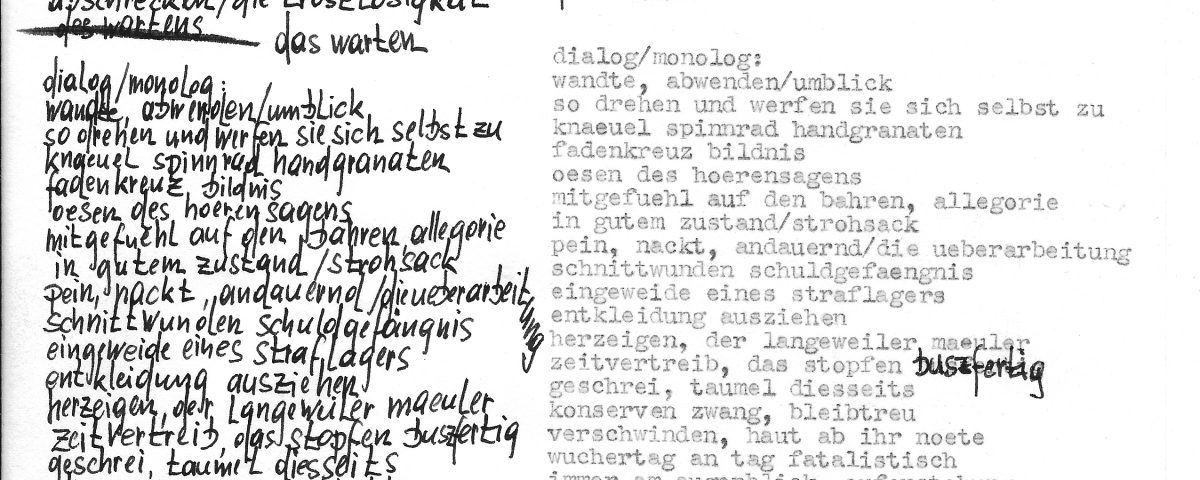 abschrecken/die trostlosigkeit
des wartens das warten
dialog/monolog:
wandte, abwenden/umblick
so drehen und werfen sie sich selbst zu
knaeuel spinnrad handgranaten
fadenkreuz, bildnis
oesen des hoerensagens
mitgefuehl auf den bahren, allegorie
in gutem zustand/strohsack
pein, nackt, andauernd/die ueberarbeitung
schnittwunden schuldgefängnis
eingeweide eines straflagers
entkleidung ausziehen
herzeigen, der langeweiler maeuler
zeitvertreib, das stopfen buszfertig
geschrei, taumel diesseits
dialog/monolog:
wandte, abwenden/umblick
so drehen und werfen sie sich selbst zu
knaeuel spinnrad handgranaten
fadenkreuz bildnis
oesen des hoerensagens
mitgefuehl auf den bahren, allegorie
in gutem zustand/strohsack
pein, nackt, andauernd/die ueberarbeitung
schnittwunden schuldgefaengnis
eingeweide eines straflagers
entkleidung ausziehen
herzeigen, der langeweiler maeuler
zeitvertreib, das stopfen buszfertig
geschrei, taumel diesseits
konserven zwang, bleibtreu
verschwinden, haut ab ihr noete
wuchertag an tag fatalistisch
immer am augenblick,